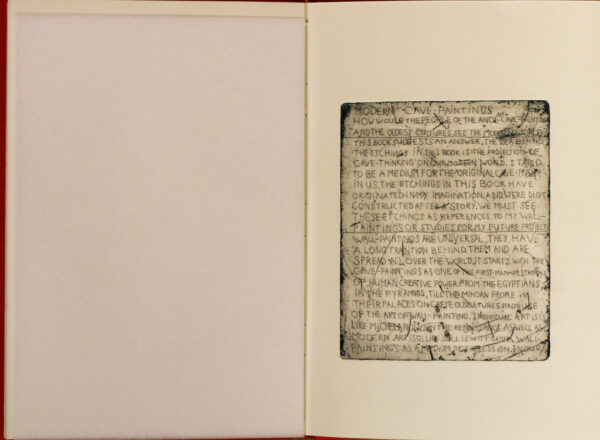 MODERN CAVE PAINTINGS
HOW WOULD THE PEOPLE OF THE ANCIE CAVE-PAINTIN
AND THE OLDEST CULTURES SEE THE MODERN
THIS BOOK SUGGESTS AN ANSWER. THE IDEA BEHIND
THE ETCHINGS IN THIS BOOK IS THE PROJECTION OF
'CAVE-THINKING' ON OUR MODERN WORLD. I TRIED
TO BE A MEDIUM FOR THE ORIGINAL CAVE-MAN
IN US. THE ETCHINGS IN THIS BOOK HAVE
ORIGINATED IN MY IMAGINATION AND WERE NOT
CONSTRUCTED AFTER A STORY. WE MUST SEE
THESE ETCHINGS AS REFERENCES TO MY WALL-
PAINTINGS OR STUDIES FOR MY FUTURE PROJECT
WALL-PAINTINGS ARE UNIVERSAL. THEY HAVE
A LONG TRADITION BEHIND THEM AND ARE
SPREAD ALL OVER THE WORLD. IT STARTS WITH THE
CAVE-PAINTINGS AS ONE OF THE FIRST MANIFESTATIONS
OF HUMAN CREATIVE POWER. FROM THE EGYPTIANS
IN THE PYRAMIDS, TILL THE MINOAN PEOPLE IN
THEIR PALACES ON CRETE OLD CULTURES MADE USE
OF THE ART OF WALL-PAINTING. INDIVIDUAL ARTISTS
LIKE IN THE RENAISSANCE AS WELL AS
MODERN ARTISTS LIKE SOL LEWITT WALL-
PAINTINGS AS A MEDIUM OF EXPRESSION.